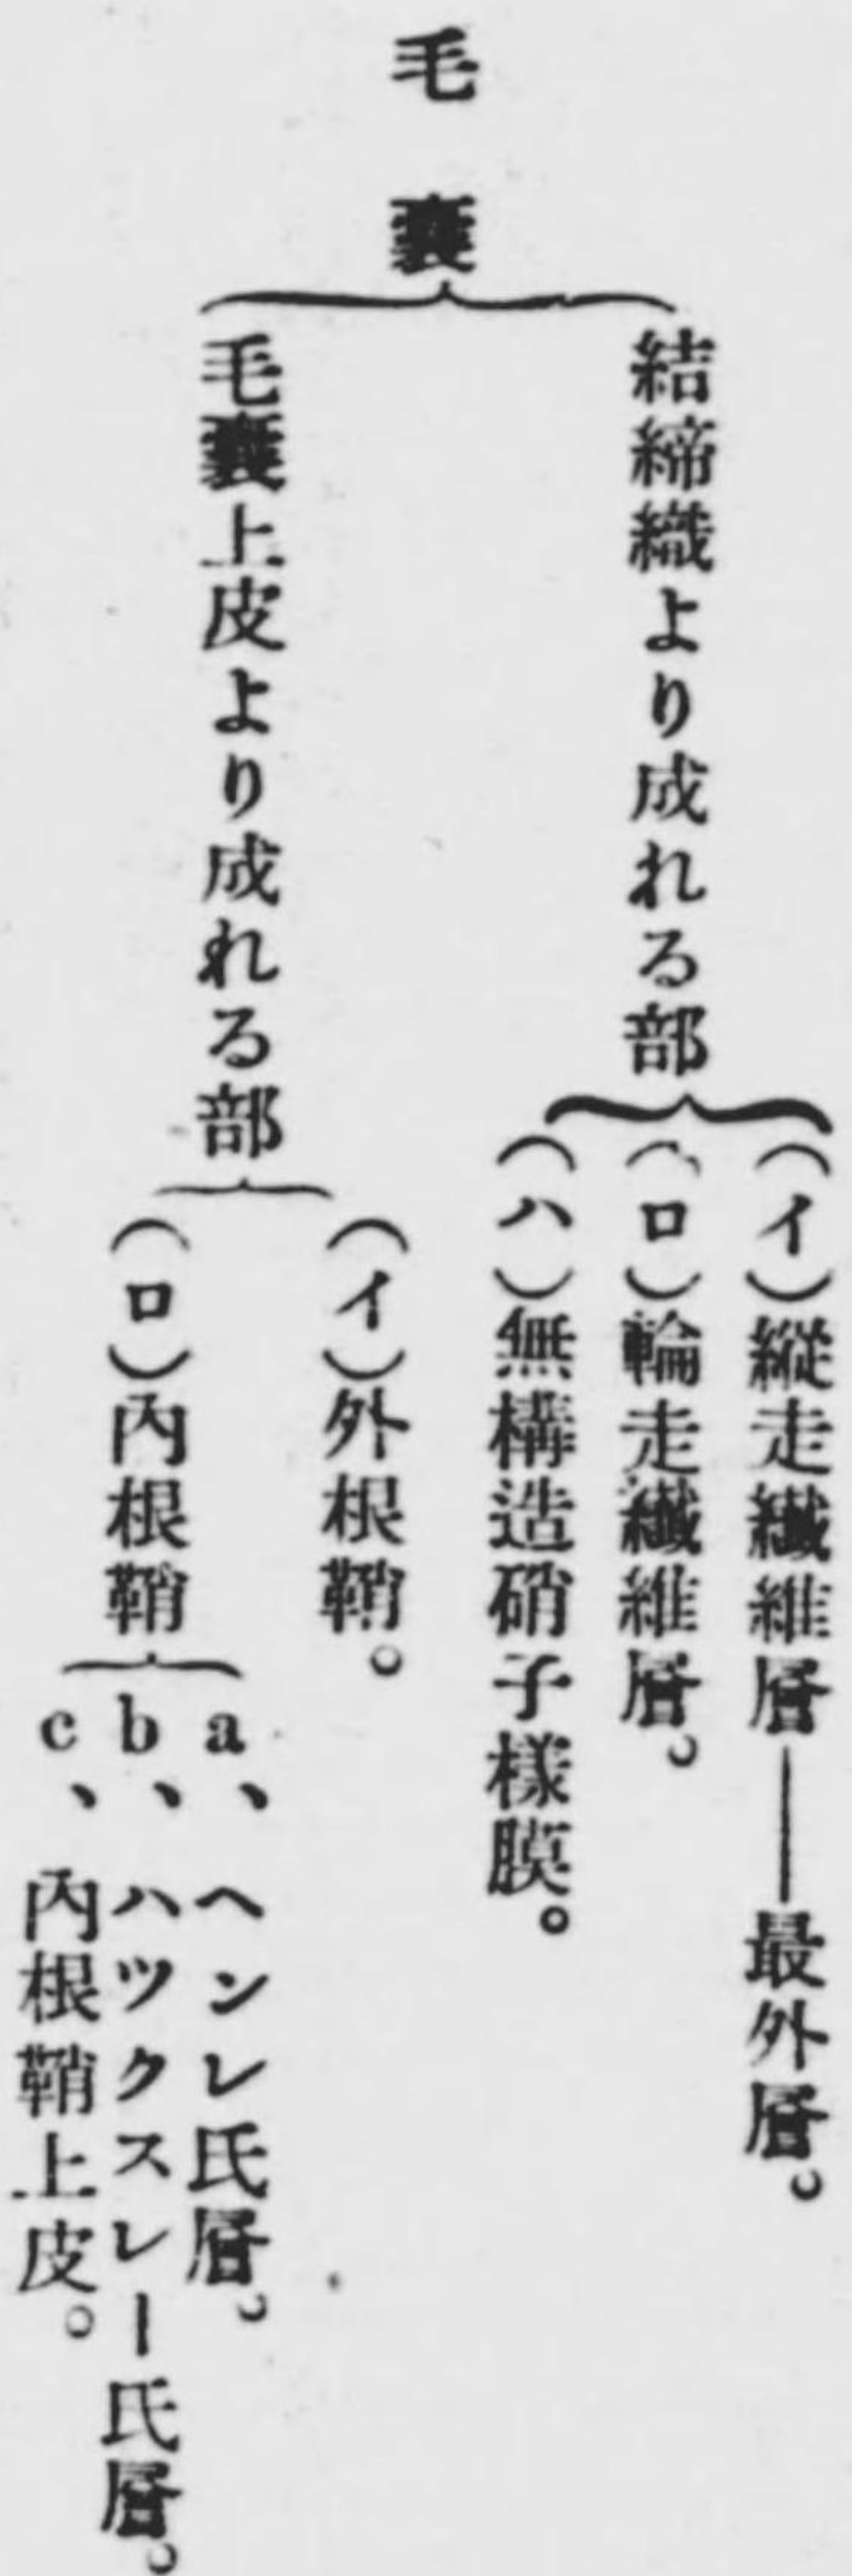 毛囊
結締織より成れる部
(イ)縱走纖維層——最外層。
(ロ)輪走纖維層。
(ハ)無構造硝子樣膜。
毛囊上皮より成れる部
(イ)外根鞘。
(ロ)內根鞘
a、ヘンレ氏層。
b、ハツクスレー氏層。
c、內根鞘上皮。